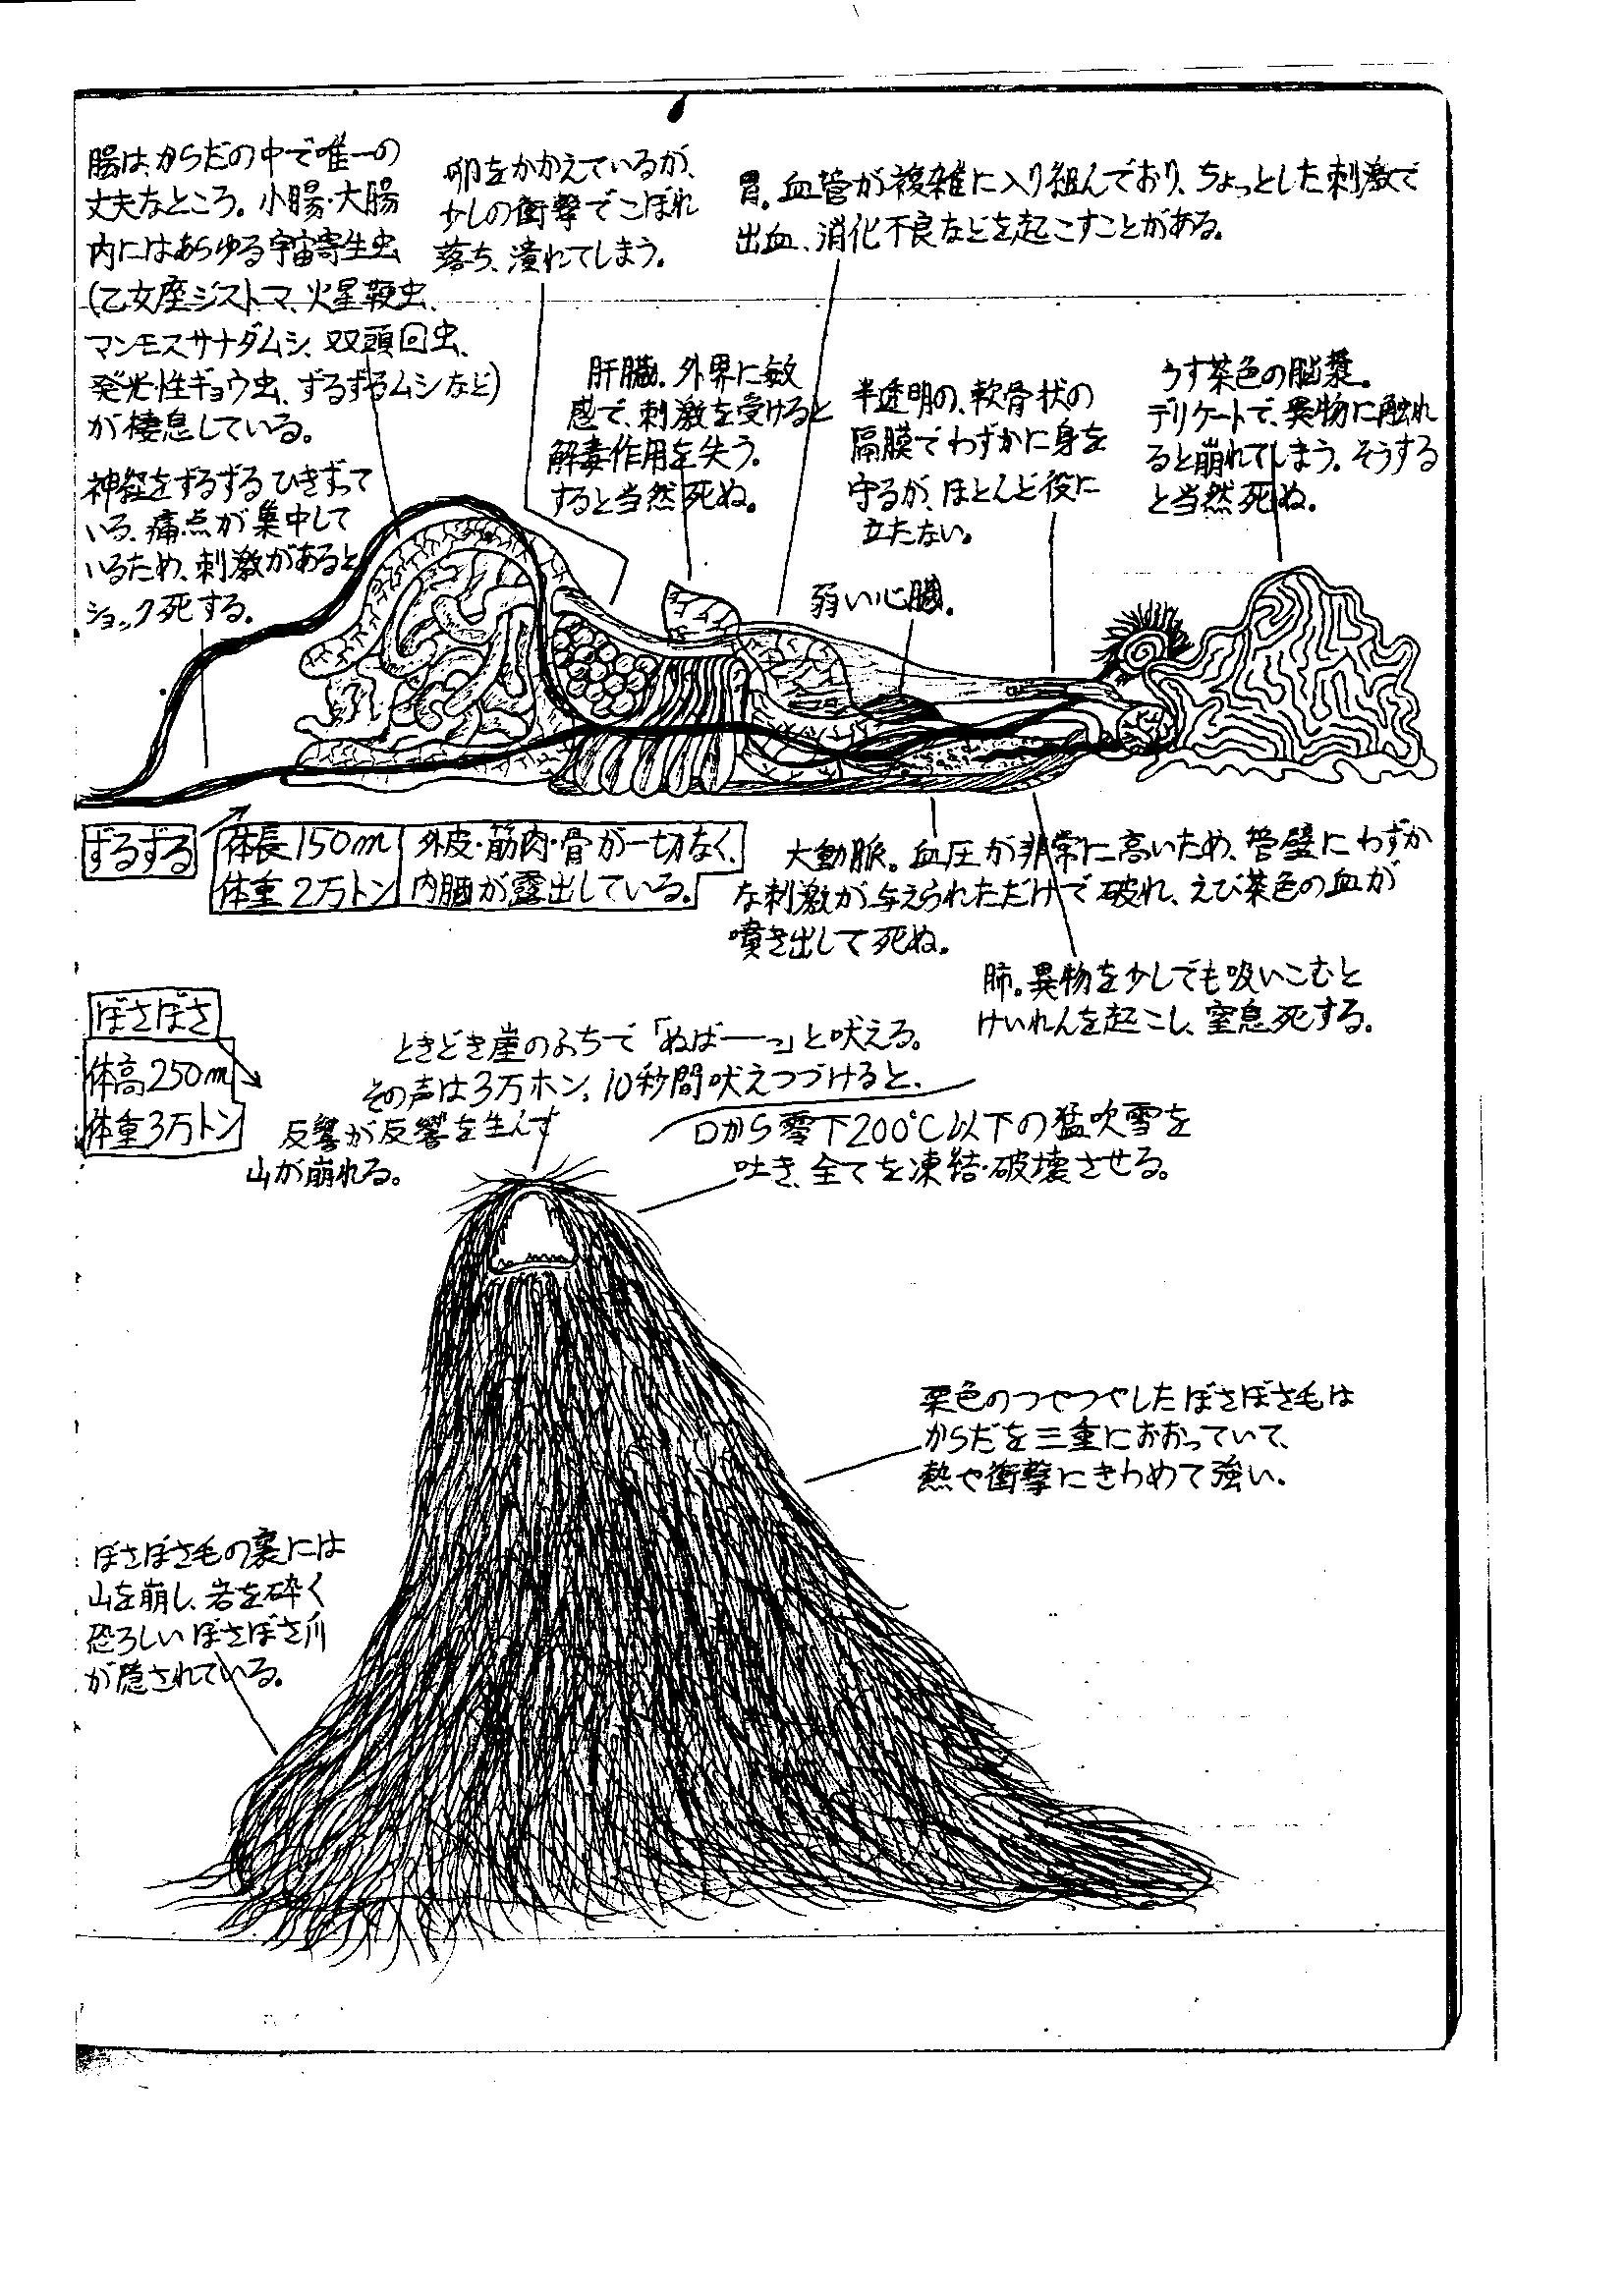 腸は、からだの中で唯一の
丈夫なところ。小腸・大腸
内にはあらゆる宇宙寄生虫
(乙女座ジストマ、火星鞭虫、
マンモスサナダムシ、双頭回虫、
発光性ギョウ虫、ずるずるムシなど)
が棲息している。
神経をずるずるひきずって
いる。痛点が集中して
いるため、刺激があると
ショック死する。
卵をかかえているが、
少しの衝撃でこぼれ
落ち、潰れてしまう。
胃。血管が複雑に入り組んでおり、ちょっとした刺激で
出血、消化不良などを起こすことがある。
肝臓。外界に敏
感で、刺激を受けると
解毒作用を失う。
すると当然死ぬ。
半透明の、軟骨状の
隔膜でわずかに身を
守るが、ほとんど役に
立たない。
うす茶色の脳漿。
デリケートで、異物に触れ
ると崩れてしまう。そうする
と当然死ぬ。
弱い心臓。
ずるずる
体長150m
体重2万トン
外皮・筋肉・骨が一切なく、
内臓が露出している。
大動脈。血圧が非常に高いため、管壁にわずか
な刺激が与えられただけで破れ、えび茶色の血が
噴き出して死ぬ。
肺。異物を少しでも吸いこむと
けいれんを起こし、窒息死する。
ぼさぼさ
体高250m
体重3万トン
ときどき崖のふちで「ぬばーーっ」と吠える。
その声は3万ホン。10秒間吠えつづけると、
反響が反響を生んで
山が崩れる。
口から零下200℃以下の猛吹雪を
吐き、全てを凍結・破壊させる。
栗色のつやつやしたぼさぼさ毛は
からだを三重におおっていて、
熱や衝撃にきわめて強い。
ぼさぼさ毛の裏には
山を崩し、岩を砕く
恐ろしいぼさぼさ爪
が隠されている。